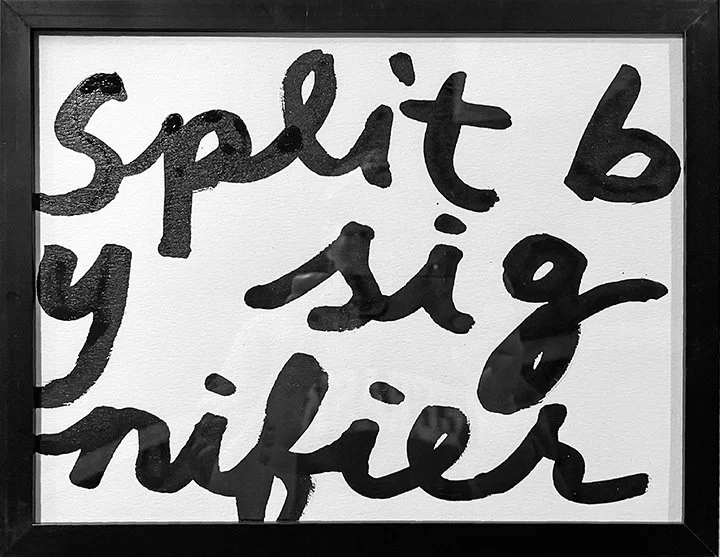 Split b
y sig
nifier